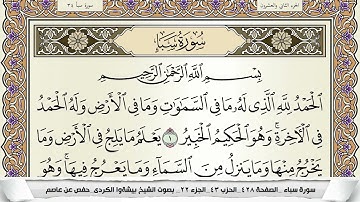 الجزء الثاني والعشرون
سورة سبأ ٣٤
سُورَةُ سَبَإٍ
بِسْمِ اللَّهِ الرَّحْمَٰنِ الرَّحِيمِ
الْحَمْدُ لِلَّهِ الَّذِي لَهُ مَا فِي السَّمَاوَاتِ وَمَا فِي الْأَرْضِ وَلَهُ الْحَمْدُ
فِي الْآخِرَةِ ۚ وَهُوَ الْحَكِيمُ الْخَبِيرُ ١ يَعْلَمُ مَا يَلِجُ فِي الْأَرْضِ وَمَا
يَخْرُجُ مِنْهَا وَمَا يَنزِلُ مِنَ السَّمَاءِ وَمَا يَعْرُجُ فِيهَا ۚ وَهُوَ
سورة سباء _ الصفحة ٤٢٨ _ الحزب ٤٣ _ الجزء ٢٢ _ بصوت الشيخ بيشةوا الكردي _ حفص عن عاصم